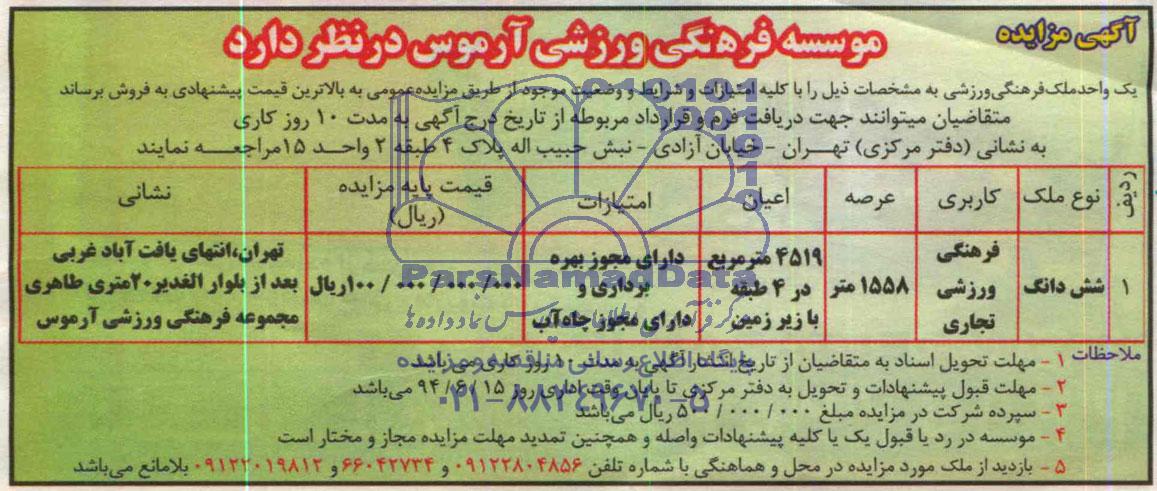 آگهی مزایده
موسسه فرهنگی ورزشی آرموس درنظر دارد
یک واحدملک‌فرهنگی‌ورزشی به مشخصات ذیل را با کلیه امتیازات و شرایط و وضعیت موجود از طریق مزایده‌عمومی به بالاترین قیمت پیشنهادی به فروش برساند
متقاضیان میتوانند جهت دریافت فرم و قرارداد مربوطه از تاریخ درج آگهی به مدت ۱۰ روز کاری
به نشانی (دفتر مرکزی) تهـــران - خیابان آزادی - نبش حبیب اله پلاک ۴ طبقه ۲ واحـد ۱۵ مراجعـــه نمایند
ردیف نوع ملک کاربری عرصه اعیان امتیازات قیمت پایه مزایده (ریال) نشانی
۱ شش دانگ فرهنگی ورزشی تجاری ۱۵۵۸ متر ۴۵۱۹ مترمربع در ۴ طبقه با زیر زمین دارای مجوز بهره برداری و دارای مجوز چاه‌آب ۱۰۰/۰۰۰/۰۰۰/۰۰۰ریال تهران،انتهای یافت آباد غربی بعد از بلوار الغدیر۲۰متری طاهری مجموعه فرهنگی ورزشی آرموس
ملاحظات ۱ - مهلت تحویل اسناد به متقاضیان از تاریخ انتشار آگهی به مدت ۱۰ روز کاری می باشد
۲ - مهلت قبول پیشنهادات و تحویل به دفتر مرکزی تا پایان وقت اداری روز ۹۴/۶/۱۵ می‌باشد
۳ - سپرده شرکت در مزایده مبلغ ۵۰۰/۰۰۰/۰۰۰ ریال می‌باشد
۴ - موسسه در رد یا قبول یک یا کلیه پیشنهادات واصله و همچنین تمدید مهلت مزایده مجاز و مختار است
۵ - بازدید از ملک مورد مزایده در محل و هماهنگی با شماره تلفن ۰۹۱۲۲۸۰۴۸۵۶ و ۶۶۰۴۲۷۳۴ و ۰۹۱۲۲۰۱۹۸۱۲ بلامانع می‌باشد
ParsNamadData
پایگاه اطلاع رسانی مناقصه و مزایده
۰۲۱-۸۸۳۴۹۶۷۰-۵